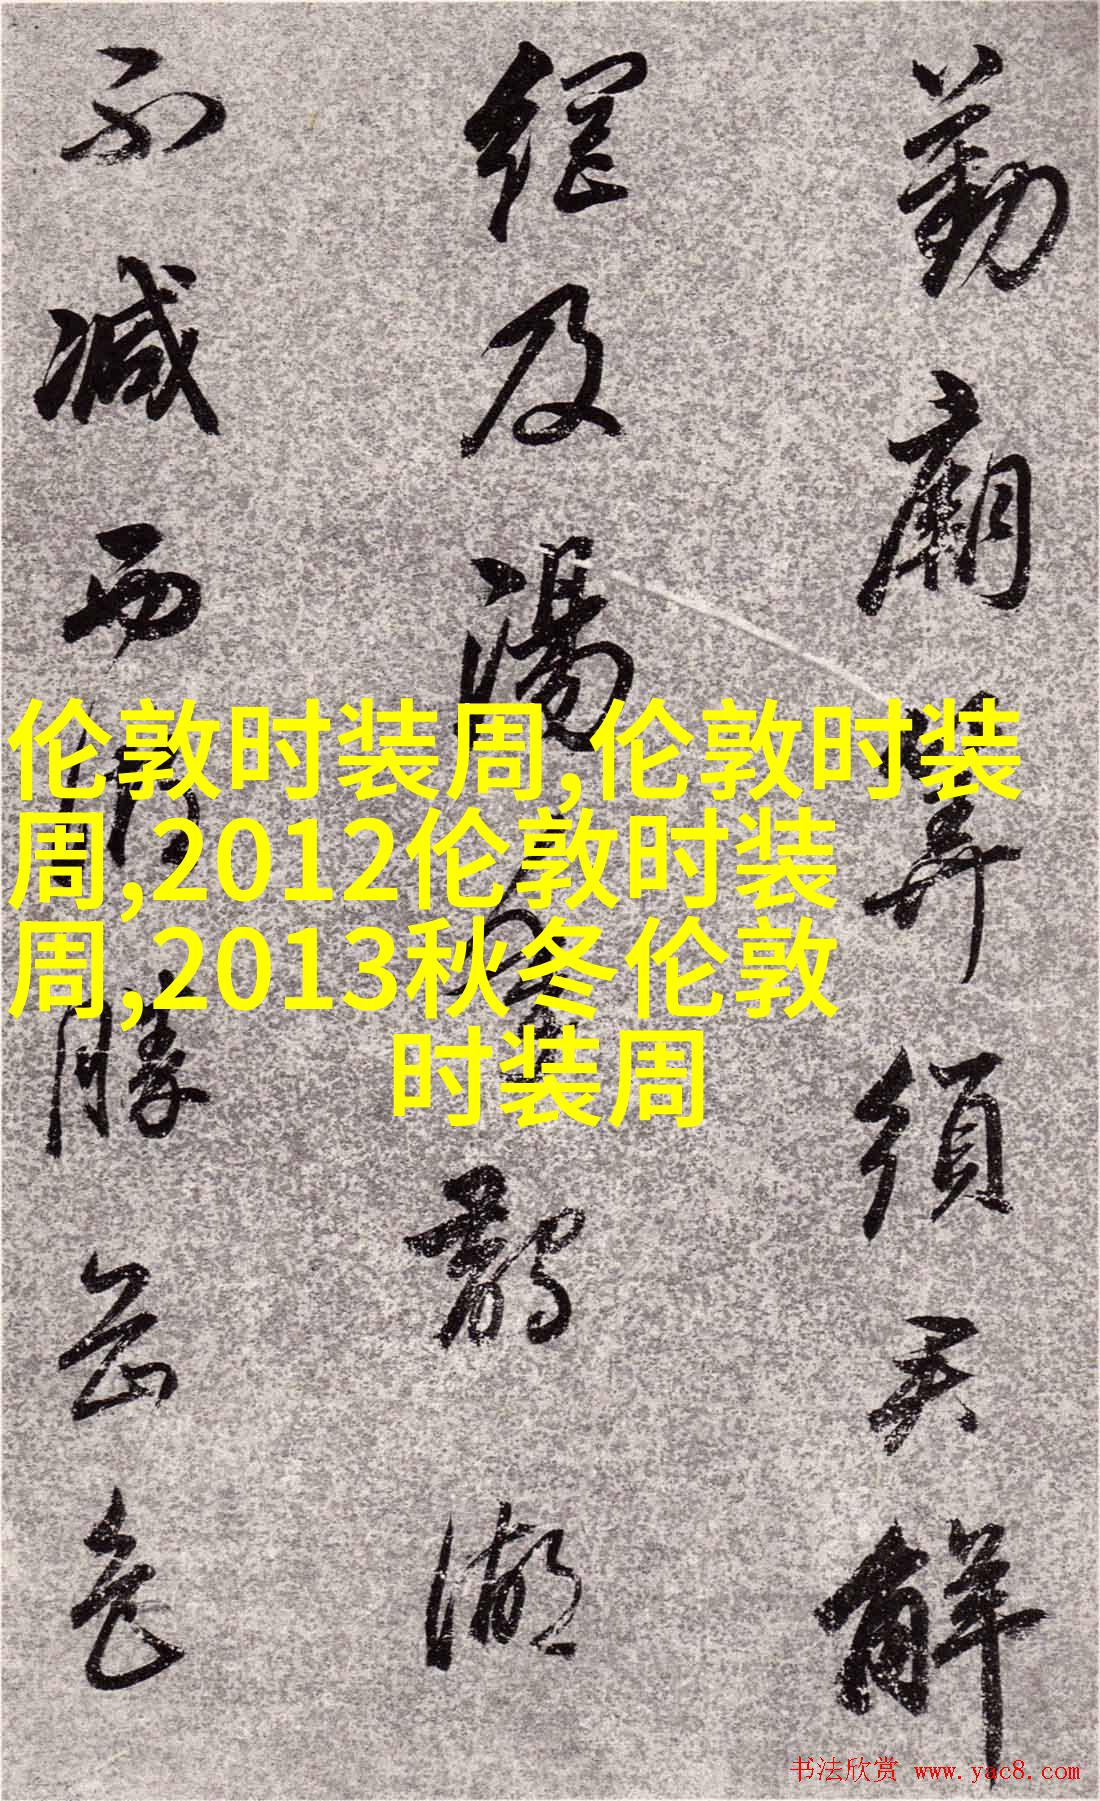 勤廟算須君解
綱及湯
鵲湖
不減西湖勝荷花
伦敦时装周,伦敦时装
周,2012伦敦时装
周,2013秋冬伦敦
时装周
书法欣赏 www.yac8.com